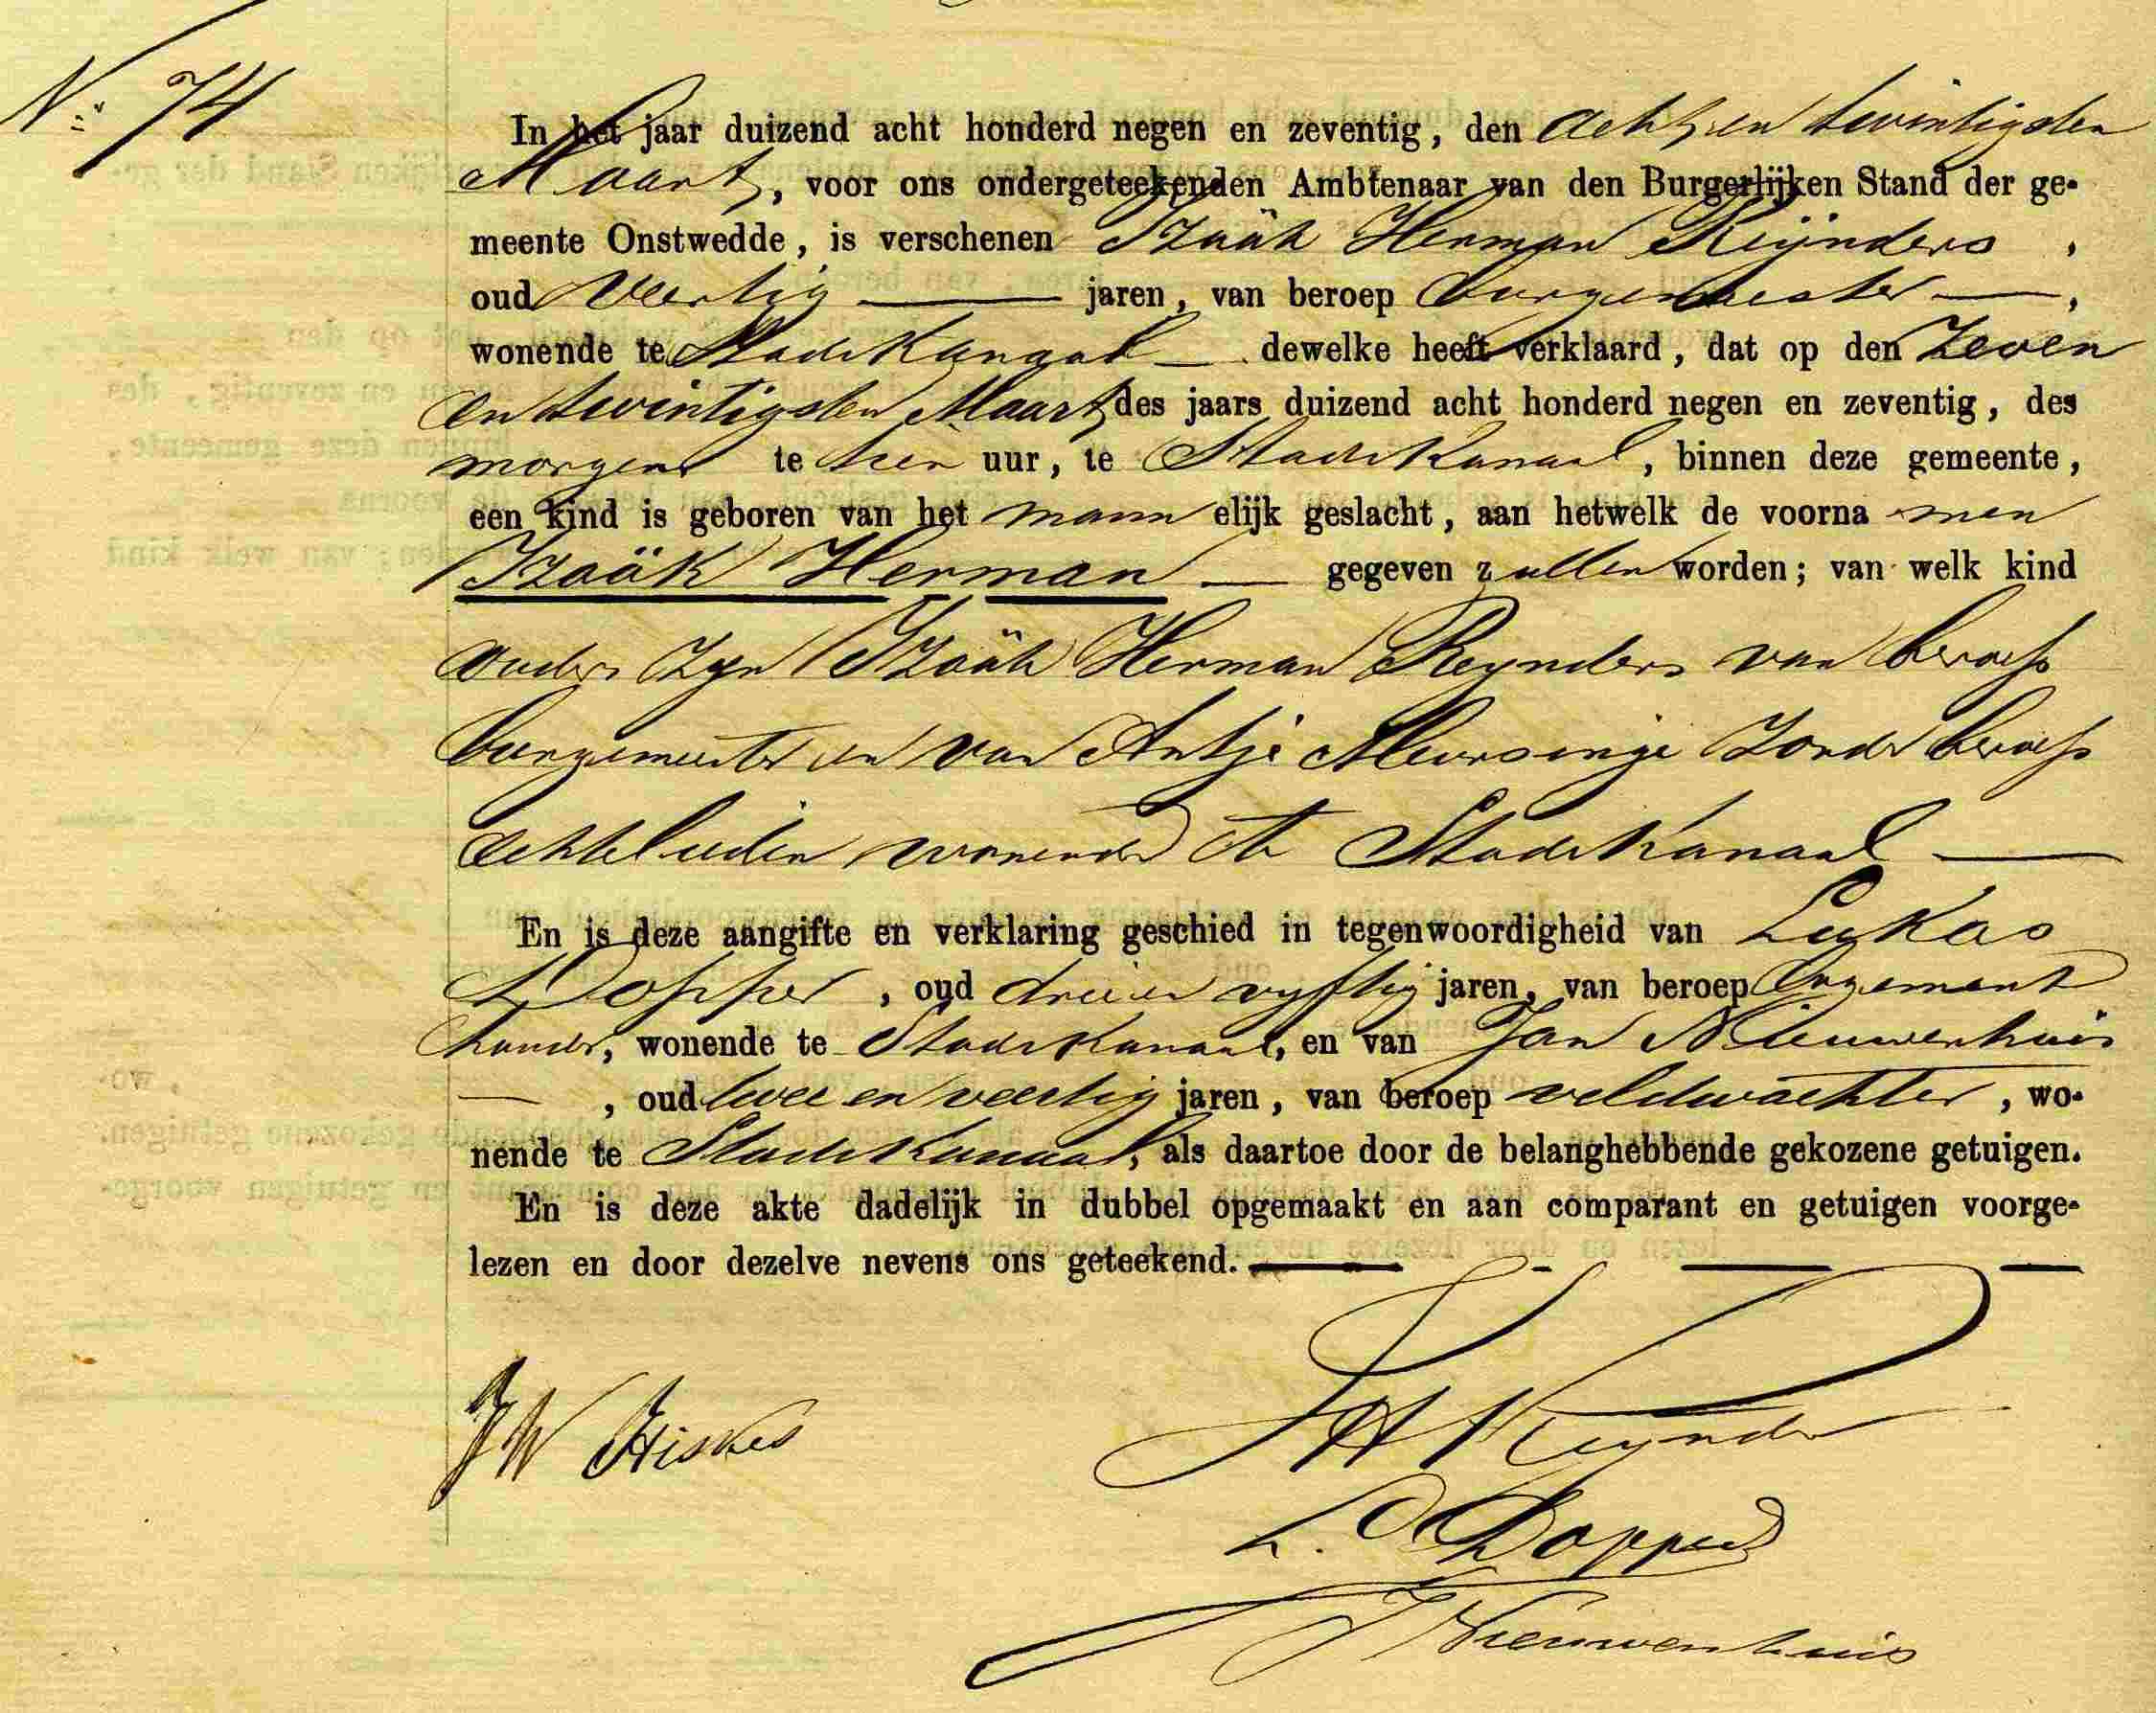 No 74
In het jaar duizend acht honderd negen en zeventig, den acht en twintigsten
Maart, voor ons ondergeteekenden Ambtenaar van den Burgerlijken Stand der ge-
meente Onstwedde, is verschenen Izaäk Herman Reijnders,
oud Veertig jaren, van beroep burgemeester,
wonende te Stadskanaal dewelke heeft verklaard, dat op den Zeven
en twintigsten Maart des jaars duizend acht honderd negen en zeventig, des
morgens te tien uur, te Stadskanaal, binnen deze gemeente,
een kind is geboren van het mannelijk geslacht, aan hetwelk de voornamen
Izaäk Herman gegeven zullen worden; van welk kind
ouders zyn Izaäk Herman Reynders van beroep
burgemeester en van Antje Meursinge zonder beroep
echtelieden wonende te Stadskanaal
En is deze aangifte en verklaring geschied in tegenwoordigheid van Lukas
Dopper, oud drie en vyftig jaren, van beroep logement
houder, wonende te Stadskanaal, en van Jan Nieuwenhuis
, oud twee en veertig jaren, van beroep veldwachter, wo-
nende te Stadskanaal, als daartoe door de belanghebbende gekozene getuigen.
En is deze akte dadelijk in dubbel opgemaakt en aan comparant en getuigen voorge-
lezen en door dezelve nevens ons geteekend.
JW Hiskes
IH Reynders
L. Dopper
J Nieuwenhuis